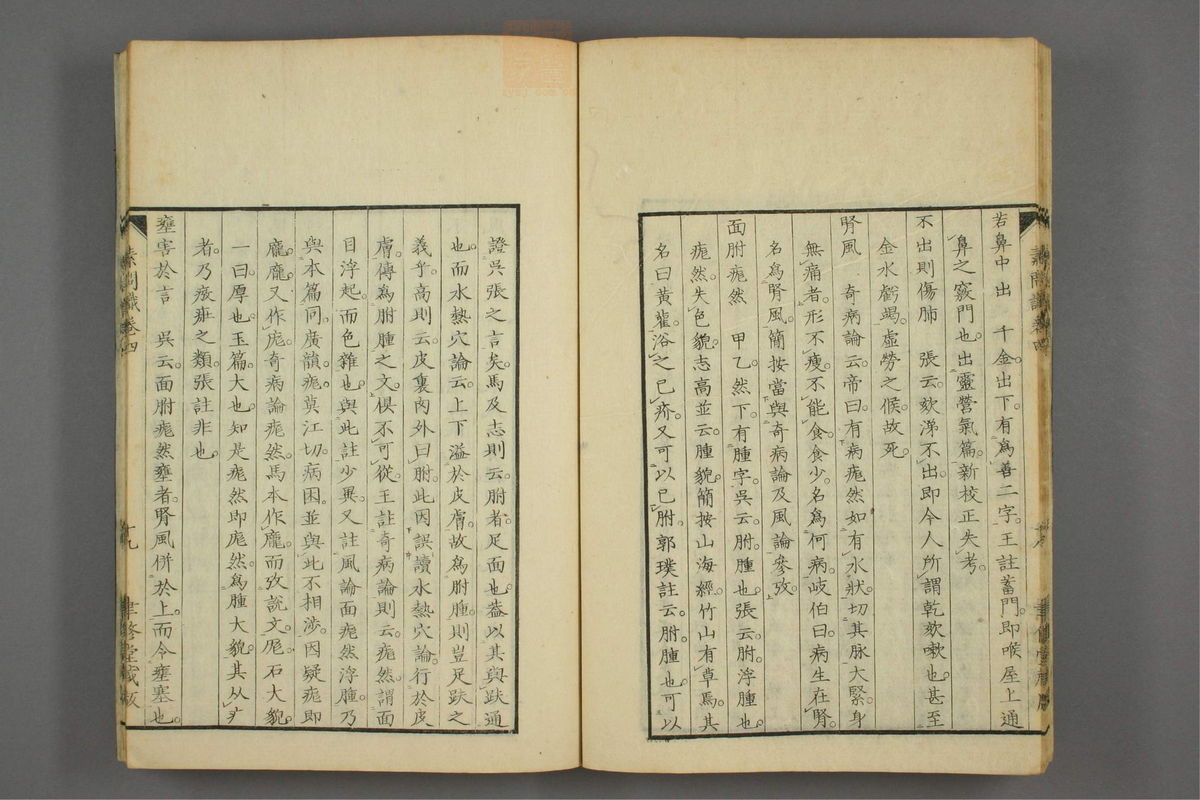 若鼻中出　千金出下有爲善二字王註蓄門即喉屋上通
鼻之竅門也出靈營氣篇新校正失考
不出則傷肺　張云欬涕不出即今人所謂乾欬嗽也甚至
金水虧竭虛勞之候故死
腎風　奇病論云帝曰有病痝然如有水狀切其脉大緊身
無痛者形不瘦不能食食少名爲何病岐伯曰病生在腎
名爲腎風簡按當與奇病論及風論參攷
面胕痝然　甲乙然下有腫字吳云胕腫也張云胕浮腫也
痝然失色貌志高並云腫貌簡按山海經竹山有草焉其
名曰黃雚浴之已疥又可以已胕郭璞註云胕腫也可以
證吳張之言矣馬及志則云胕者足面也蓋以其與趺通
也而水熱穴論云上下溢於皮膚故爲胕腫則豈足趺之
義乎高則云皮裏肉外曰胕此因誤讀水熱穴論行於皮
膚傳爲胕腫之文俱不可從王註奇病論則云痝然謂面
目浮起而色雜也與此註少異又註風論面痝然浮腫乃
與本篇同廣韻痝莫江切病困並與此不相涉因疑痝即
龐龐又作庬奇病論痝然馬本作龐而攷說文厖石大貌
一曰厚也玉篇大也知是痝然即庬然爲腫大貌其从疒
者乃痎疟之類張註非也
壅害於言　吳云面胕痝然壅者腎風併於上而令壅塞也
素問識卷四
十九
聿修堂藏板